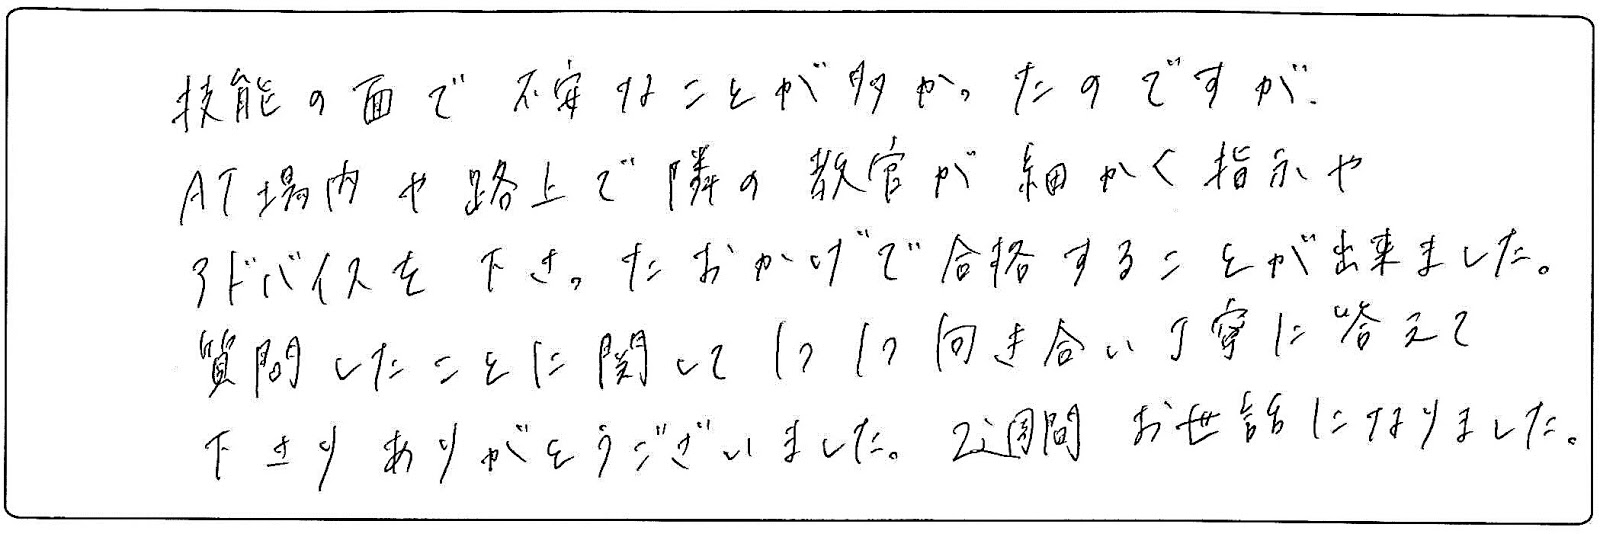 技能の面で不安なことが多かったのですが、
AT場内や路上で隣の教官が細かく指示や
アドバイスを下さったおかげで合格することが出来ました。
質問したことに関して1つ1つ向き合い丁寧に答えて
下さりありがとうございました。2週間お世話になりました。